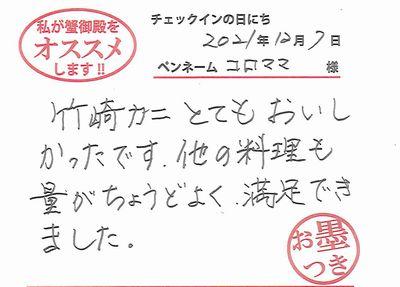 私が蟹御殿を
オススメ
します!!
チェックインの日にち
2021年12月7日
ペンネーム コロママ 様
竹崎カニとてもおいし
かったです. 他の料理も
量がちょうどよく.満足でき
ました。
お墨
つき